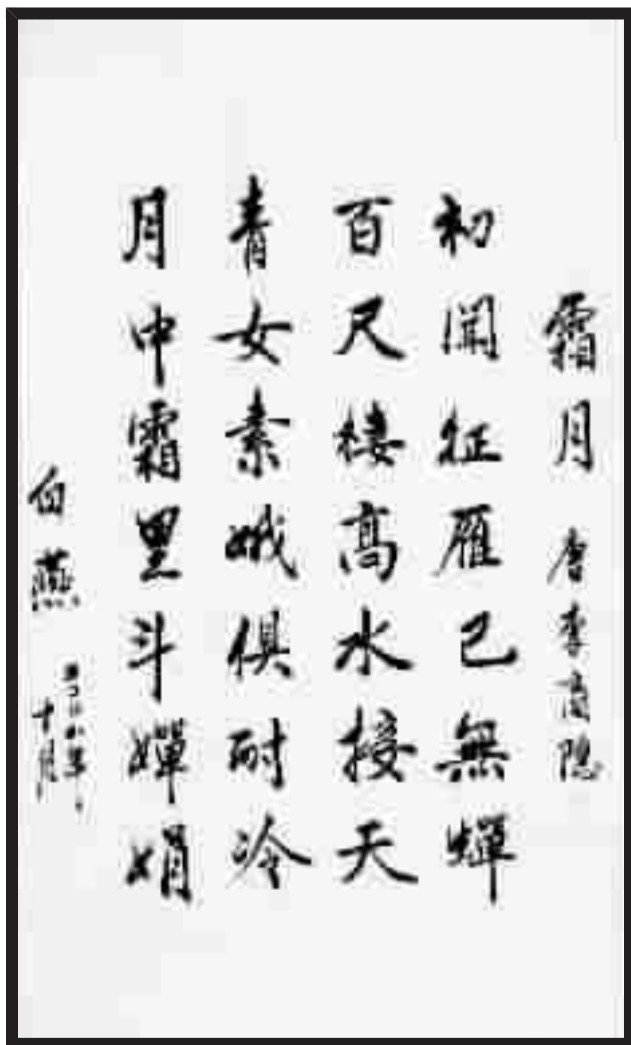 霜月 唐李商隐
初闻征雁已無蟬
百尺楼高水接天
青女素娥俱耐冷
月中霜里斗嬋娟
白燕
十月